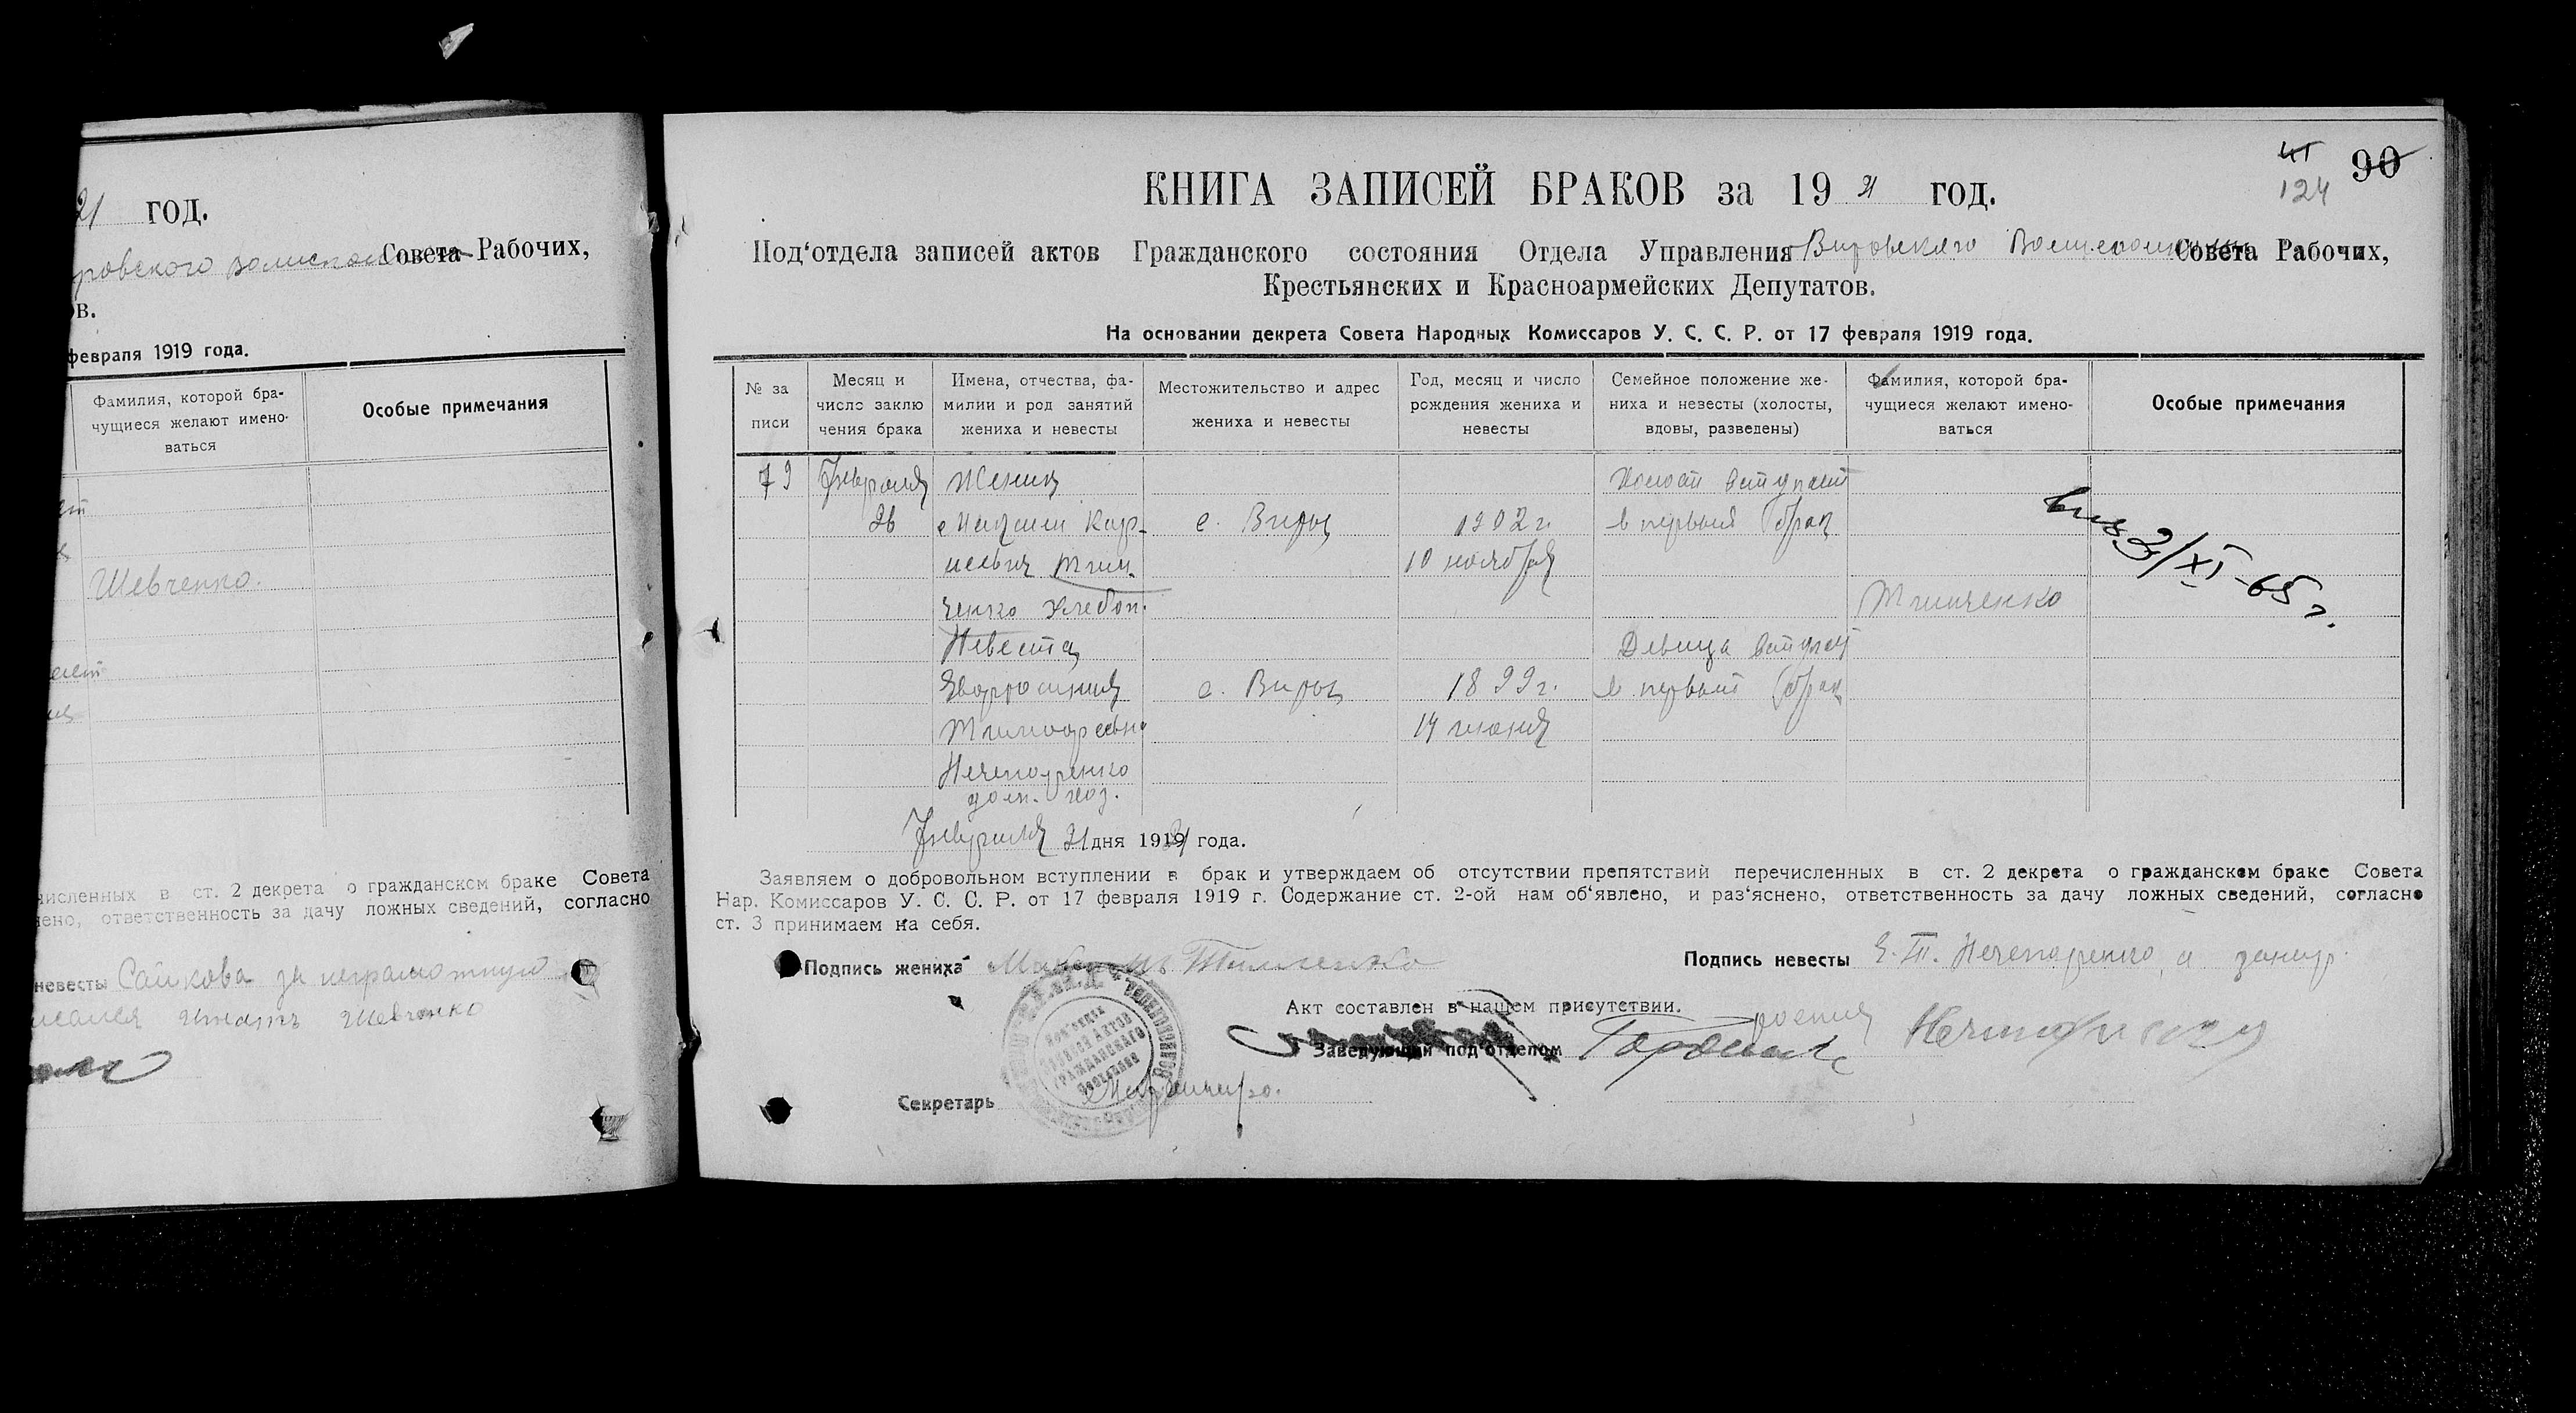 21 год.
Совета Рабочих,
ов.
февраля 1919 года.
Фамилия, которой бра-
чущиеся желают имено-
ваться
Особые примечания
Шевченко.
численных в ст. 2 декрета о гражданском браке Совета
нено, ответственность за дачу ложных сведений, согласно
невесты Сайкова за неграмотную
Шевченко
41 90
124
КНИГА ЗАПИСЕЙ БРАКОВ за 19 21 год.
Под'отдела записей актов Гражданского состояния Отдела Управления Вировского Волисполкома Совета Рабочих,
Крестьянских и Красноармейских Депутатов.
На основании декрета Совета Народных Комиссаров У. С. С. Р. от 17 февраля 1919 года.
№ за
писи
Месяц и
число заклю
чения брака
Имена, отчества, фа-
милии и род занятий
жениха и невесты
Местожительство и адрес
жениха и невесты
Год, месяц и число
рождения жениха и
невесты
Семейное положение же-
ниха и невесты (холосты,
вдовы, разведены)
Фамилия, которой бра-
чущиеся желают имено-
ваться
Особые примечания
79 Февраля Жених Холост вступает
26 Кор- с. Виры 1902 г. в первый брак
нельев Тим- 10 ноября
ченко хлебоп. Тимченко
2/XI-65 г.
Невеста Девица вступает
Евфросиния с. Виры 1899 г. в первый брак
Тимофеевна 14 июня
Нечепоренко
дом. хоз.
Февраля 21 дня 1921 года.
Заявляем о добровольном вступлении в брак и утверждаем об отсутствии препятствий перечисленных в ст. 2 декрета о гражданском браке Совета
Нар. Комиссаров У. С. С. Р. от 17 февраля 1919 г. Содержание ст. 2-ой нам об'явлено, и раз'яснено, ответственность за дачу ложных сведений, согласно
ст. 3 принимаем на себя.
Подпись жениха Тимченко Подпись невесты Е. Т. Нечепоренко, а
Акт составлен в нашем присутствии.
Заведующий под'отделом
Секретарь